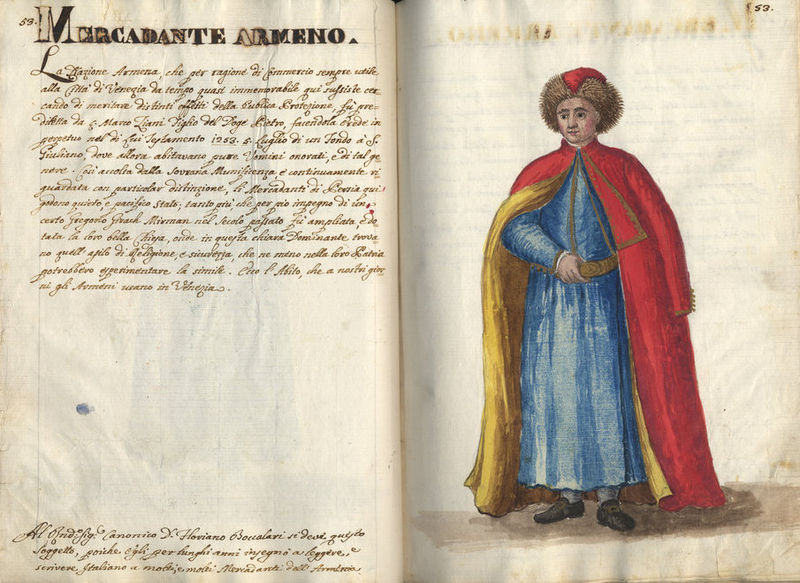 53.
MERCADANTE ARMENO.
La Nazione Armena, che per ragione di Commercio sempre utile
alla Città di Venezia da tempo quasi immemorabile qui sussiste cer-
cando di meritare distinti effetti della Publica Protezione, fù pre-
diletta da S. Marco Ziani Figlio del Doge Pietro, facendola Erede in
perpetuo nell' di lui Testamento 1253. 5 Luglio di un Fondo à S.
Giuliano, dove allora abitavano pure Uomini onorati, e di tal ge
nere. Così accolta dalla Sovrana Munificenza, e continuamente ri
guardata con particolar distinzione, li Mercadanti di Persia qui
godono quieto, e pacifico Stato, tanto più che per pio impegno di un
certo Gregorio Mirman nel Secolo passato fù ampliata, e do
tata la loro bella Chiesa, onde in questa chiara Dominante trova
no quell' asilo di Religione, e sicurezza, che ne meno nella loro Patria
potrebbero esperimentare la simile. Ecco l' Abito, che a nostri gior
ni gli Armeni usano in Venezia.
Al Canonico D. Floriano Boccalari si deve questo
Soggetto, poiche egli per lunghi anni insegnò a leggere, e
scrivere Italiano a molti, e molti Mercadanti dell' Armenia
53.